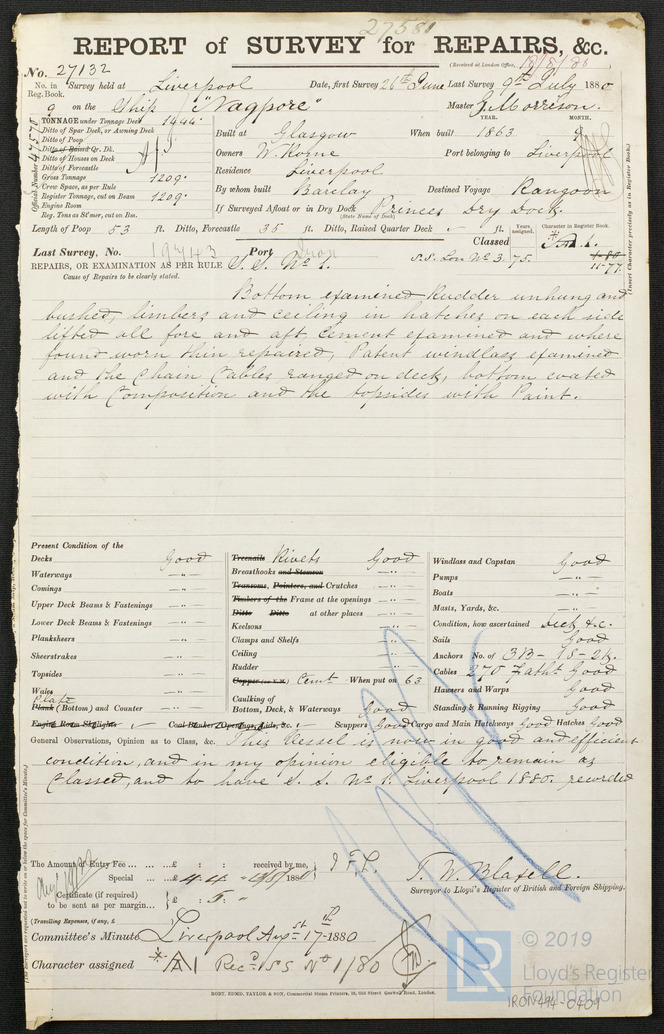 27580
REPORT of SURVEY for REPAIRS, &c.
(Received at London Office, 18/8/80
No. 27132
No. in Reg. Book. Survey held at Liverpool Date, first Survey 26th June Last Survey 9th July 1880
9 on the Ship "Nagpore" Master J. Morrison.
TONNAGE under Tonnage Deck 1444.
Ditto of Spar Deck, or Awning Deck
Ditto of Poop
Ditto of Raised Qr. Dk.
Ditto of Houses on Deck
Ditto of Forecastle
Gross Tonnage 1209.
Crew Space, as per Rule
Register Tonnage, cut on Beam 1209.
Engine Room
Reg. Tons as St'mer, cut on Bm.
Official Number 47578
YEAR. MONTH.
Built at Glasgow When built 1863
Owners W. Kome Port belonging to Liverpool
Residence Liverpool
By whom built Barclay Destined Voyage Rangoon
If Surveyed Afloat or in Dry Dock Princes Dry Dock.
(State Name of Dock)
Length of Poop 53 ft. Ditto, Forecastle 35 ft. Ditto, Raised Quarter Deck - ft.
Years assigned. Character in Register Book.
(Insert Character precisely as in Register Book.)
Last Survey, No. 19743 Port Iron Classed A.1.
REPAIRS, OR EXAMINATION AS PER RULE S.S. No 1. S.S. Lon No 3. 75. 1.80 11-77
Cause of Repairs to be clearly stated.
Bottom examined, Rudder unhung and
bushed, limbers and ceiling in hatches on each side
lifted all fore and aft, Cement examined and where
found worn thin repaired, Patent windlass examined
and the Chain Cables ranged on deck, bottom coated
with Composition and the topsides with Paint.
Present Condition of the
Decks Good
Waterways - " -
Comings - " -
Upper Deck Beams & Fastenings - " -
Lower Deck Beams & Fastenings - " -
Planksheers - " -
Sheerstrakes - " -
Topsides - " -
Wales - " -
Plate
Plank (Bottom) and Counter - " -
Engine Room Skylights - Coal Bunker Openings, Lids, &c. -
Treenails Rivets Good
Breasthooks and Stemson - " -
Transoms, Pointers, and Crutches - " -
Timbers of the Frame at the openings - " -
Ditto Ditto at other places - " -
Keelsons - " -
Clamps and Shelfs - " -
Ceiling - " -
Rudder - " -
Copper (or Y.M.) Cemt When put on 63
Caulking of
Bottom, Deck, & Waterways Good
Scuppers Good Cargo and Main Hatchways Good Hatches Good
Windlass and Capstan Good
Pumps - " -
Boats - " -
Masts, Yards, &c. - " -
Condition, how ascertained
Sails Good
Anchors No. of 3B - 1S - 2K.
Cables 270 Faths Good
Hawsers and Warps Good
Standing & Running Rigging Good
General Observations, Opinion as to Class, &c. This Vessel is now in good and efficient
condition, and in my opinion eligible to remain as
Classed, and to have S. S. No 1. Liverpool 1880. recorded
The Amount of Entry Fee ... ... ...£ : : received by me,
Special ... ...£ 4.4 1880
Certificate (if required)
to be sent as per margin... £ : 5 :
(Travelling Expenses, if any, £ )
T. W. Blabell.
Surveyor to Lloyd's Register of British and Foreign Shipping.
Committee's Minute Liverpool Augst 17th 1880
Character assigned A1 Recd S S No 1/80
ROBT, EDMD. TAYLOR & SON, Commercial Steam Printers, 19, Old Street Goswell Road, London.
LR
© 2019
Lloyd's Register
Foundation
IRON494-0409